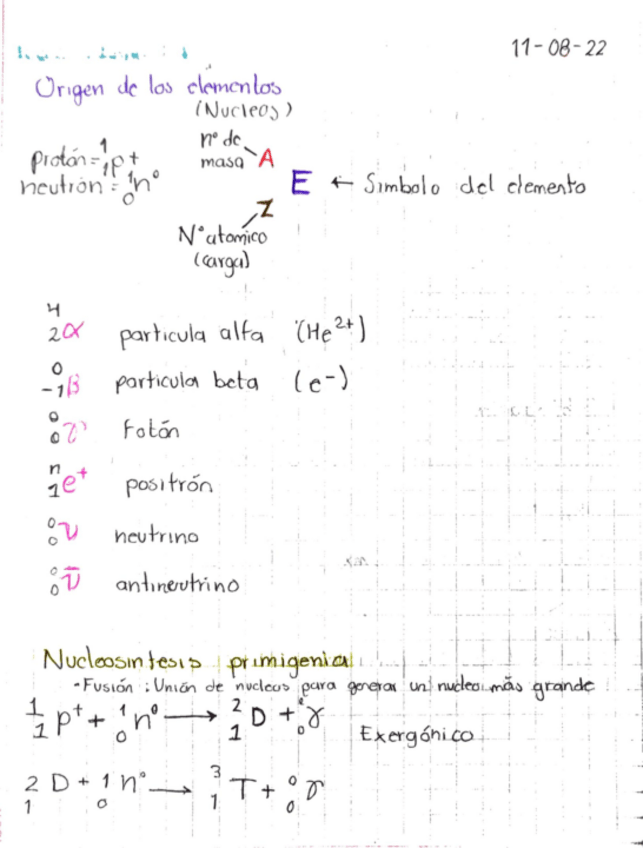 11-08-22
Origen de los elementos
(Nucleos)
protón = ¹₁p⁺
neutrión = ¹₀n⁰
n° de masa A
E ← Simbolo del elemento
Z
N° atomico
(carga)
⁴₂α particula alfa (He²⁺)
⁰₋₁β particula beta (e⁻)
⁰₀γ Fotón
ⁿ₁e⁺ positrón
⁰₀ν neutrino
⁰₀ν̄ antineutrino
Nucleosintesis primigenia
-Fusión : Unión de nucleos para generar un nucleo más grande
¹₁p⁺ + ¹₀n⁰ → ²₁D + ⁰₀γ
Exergónico
²₁D + ¹₀n⁰ → ³₁T + ⁰₀γ